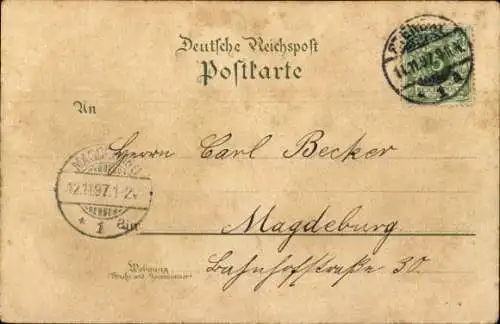 Deutsche Reichspost
Postkarte
11.11.97.
* 1 a
5
An
Herrn Carl Becker
MAGDEBURG
12.11.97.1-2
* 1
in
Magdeburg
Wohnung
Bahnhofstraße 30.